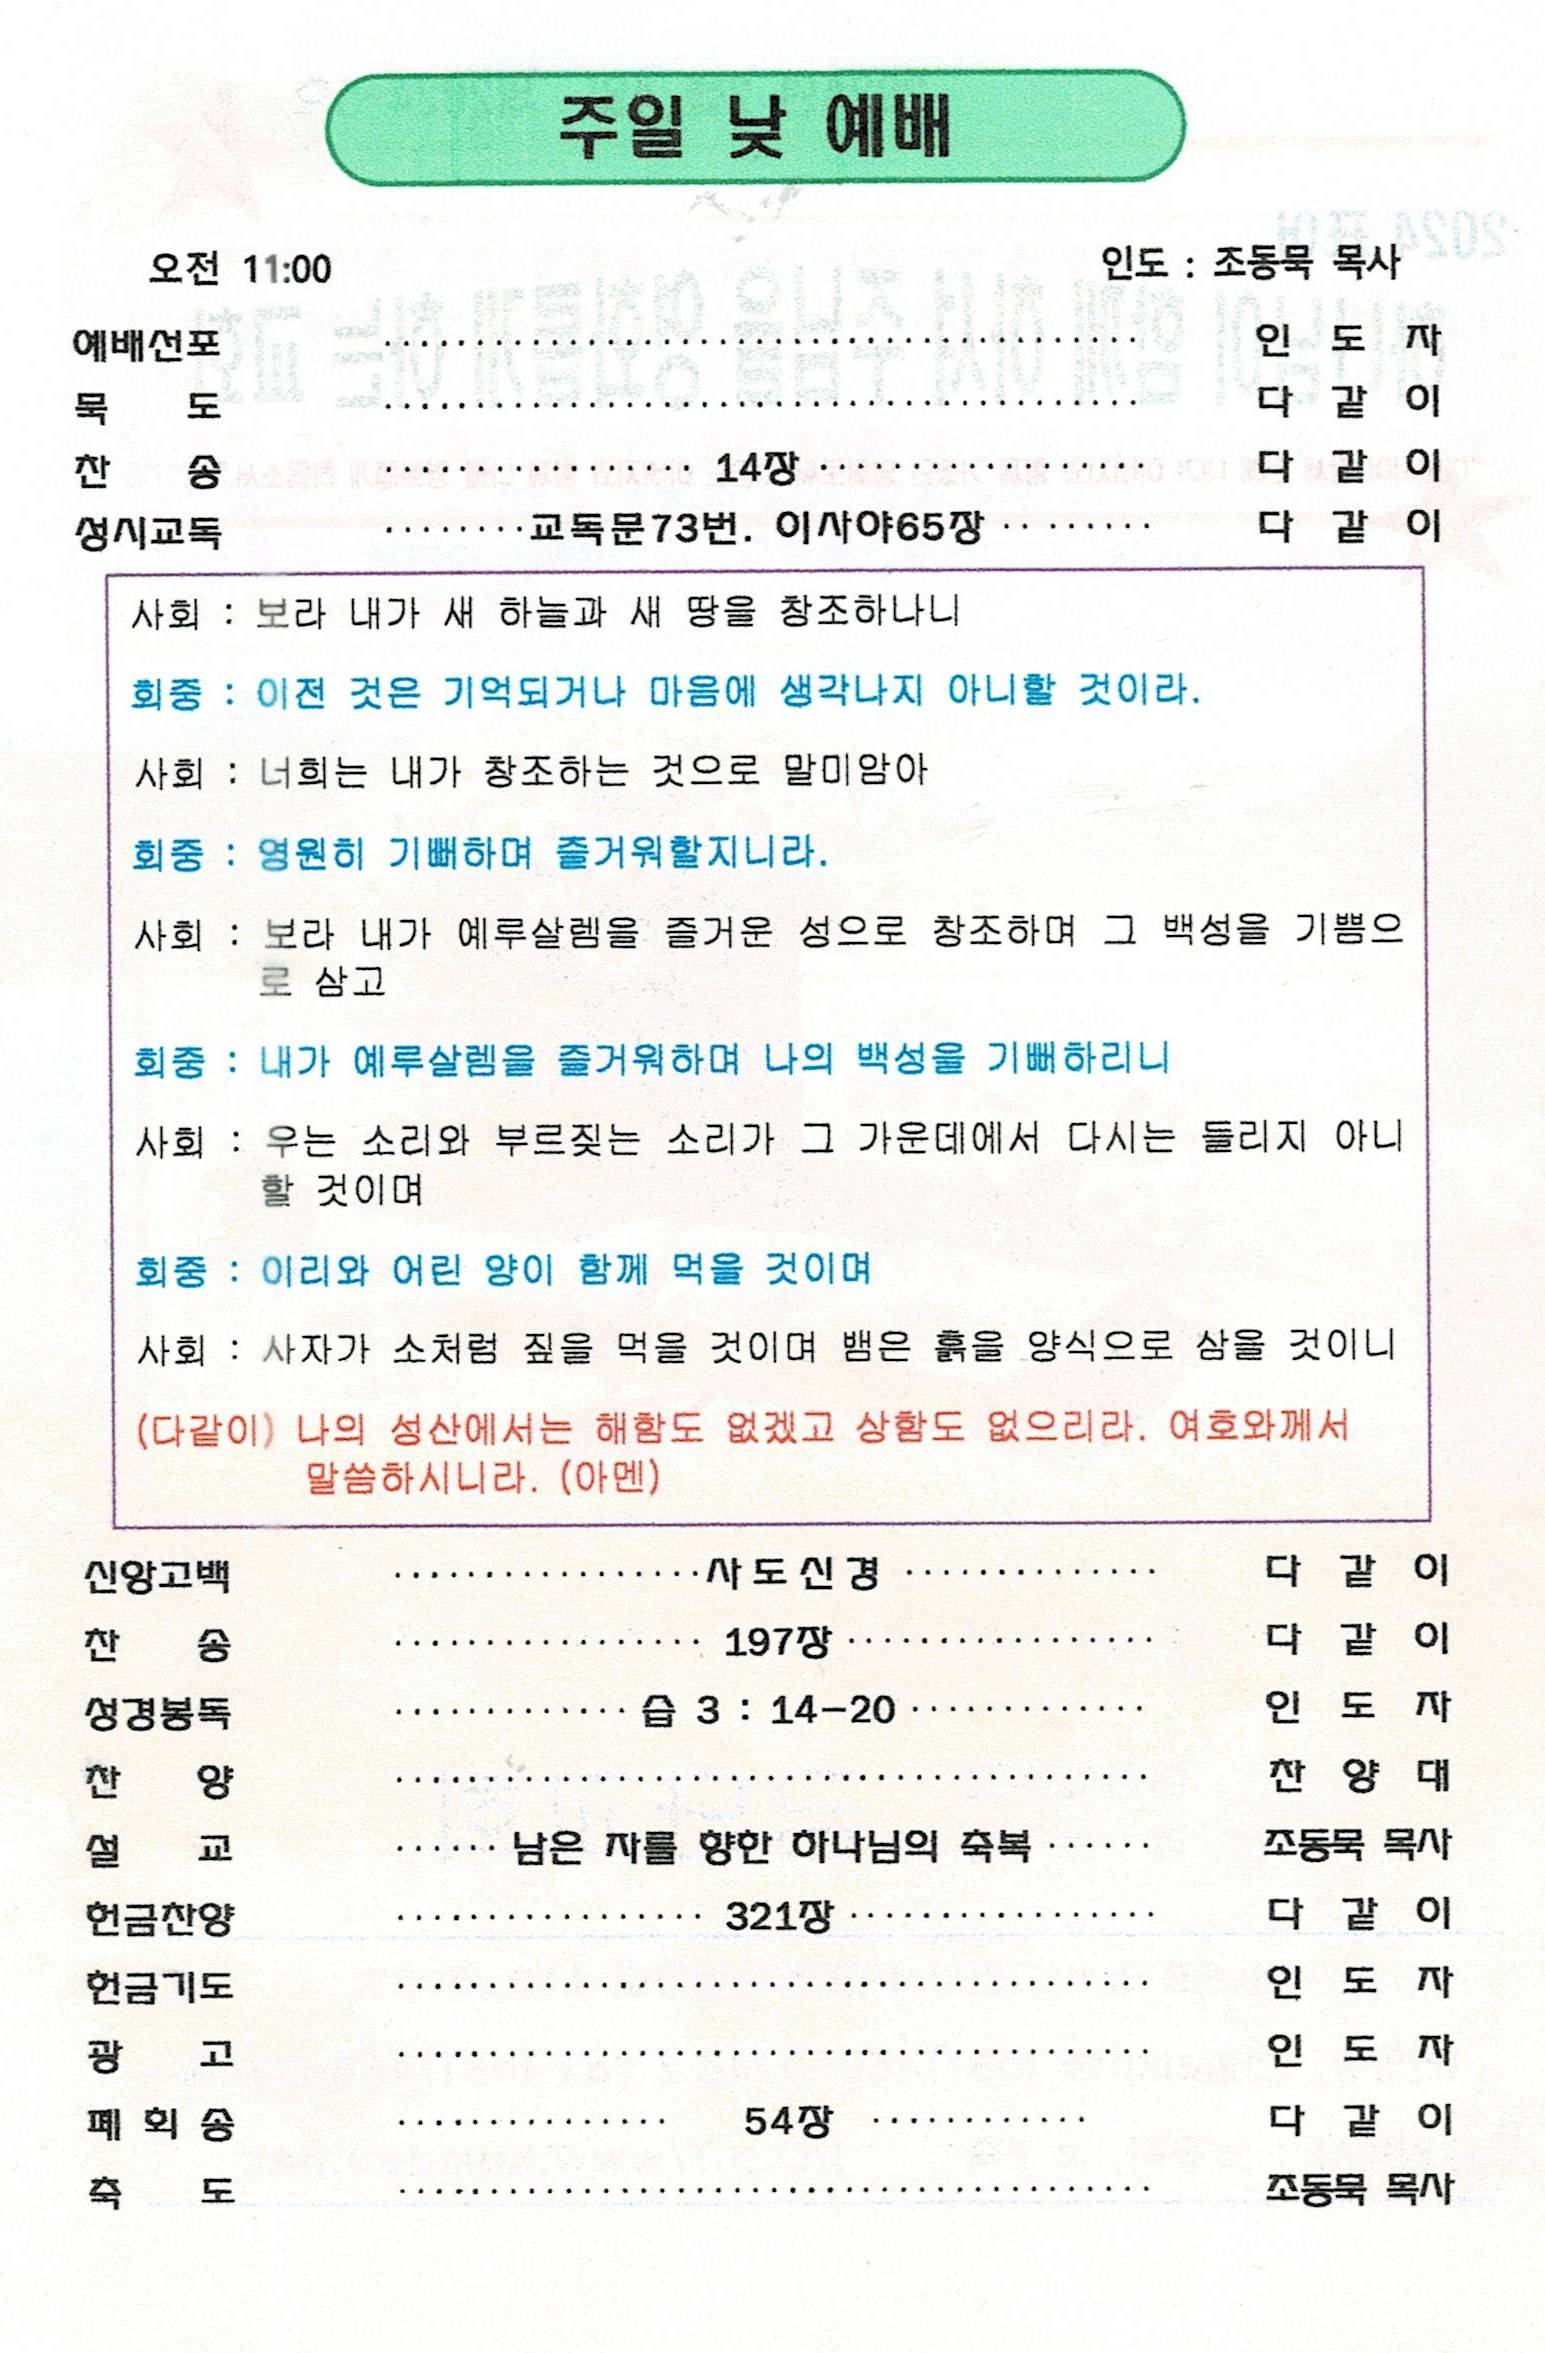 주일 낮 예배
오전 11:00 인도 : 조동묵 목사
예배선포 ·········································· 인 도 자
묵 도 ·········································· 다 같 이
찬 송 ················· 14장 ··················· 다 같 이
성시교독 ········교독문73번. 이사야65장 ·· ······· 다 같 이
사회 : 보라 내가 새 하늘과 새 땅을 창조하나니
회중 : 이전 것은 기억되거나 마음에 생각나지 아니할 것이라.
사회 : 너희는 내가 창조하는 것으로 말미암아
회중 : 영원히 기뻐하며 즐거워할지니라.
사회 : 보라 내가 예루살렘을 즐거운 성으로 창조하며 그 백성을 기쁨으
로 삼고
회중 : 내가 예루살렘을 즐거워하며 나의 백성을 기뻐하리니
사회 : 우는 소리와 부르짖는 소리가 그 가운데에서 다시는 들리지 아니
할 것이며
회중 : 이리와 어린 양이 함께 먹을 것이며
사회 : 사자가 소처럼 짚을 먹을 것이며 뱀은 흙을 양식으로 삼을 것이니
(다같이) 나의 성산에서는 해함도 없겠고 상함도 없으리라. 여호와께서
말씀하시니라. (아멘)
신앙고백 ·················사 도 신 경 ·············· 다 같 이
찬 송 ················· 197장 ················· 다 같 이
성경봉독 ············· 습 3 : 14-20 ············· 인 도 자
찬 양 ·········································· 찬 양 대
설 교 ······ 남은 자를 향한 하나님의 축복 ······ 조동묵 목사
헌금찬양 ················· 321장 ················· 다 같 이
헌금기도 ·········································· 인 도 자
광 고 ·········································· 인 도 자
폐 회 송 ··············· 54장 ············ 다 같 이
축 도 ·········································· 조동묵 목사